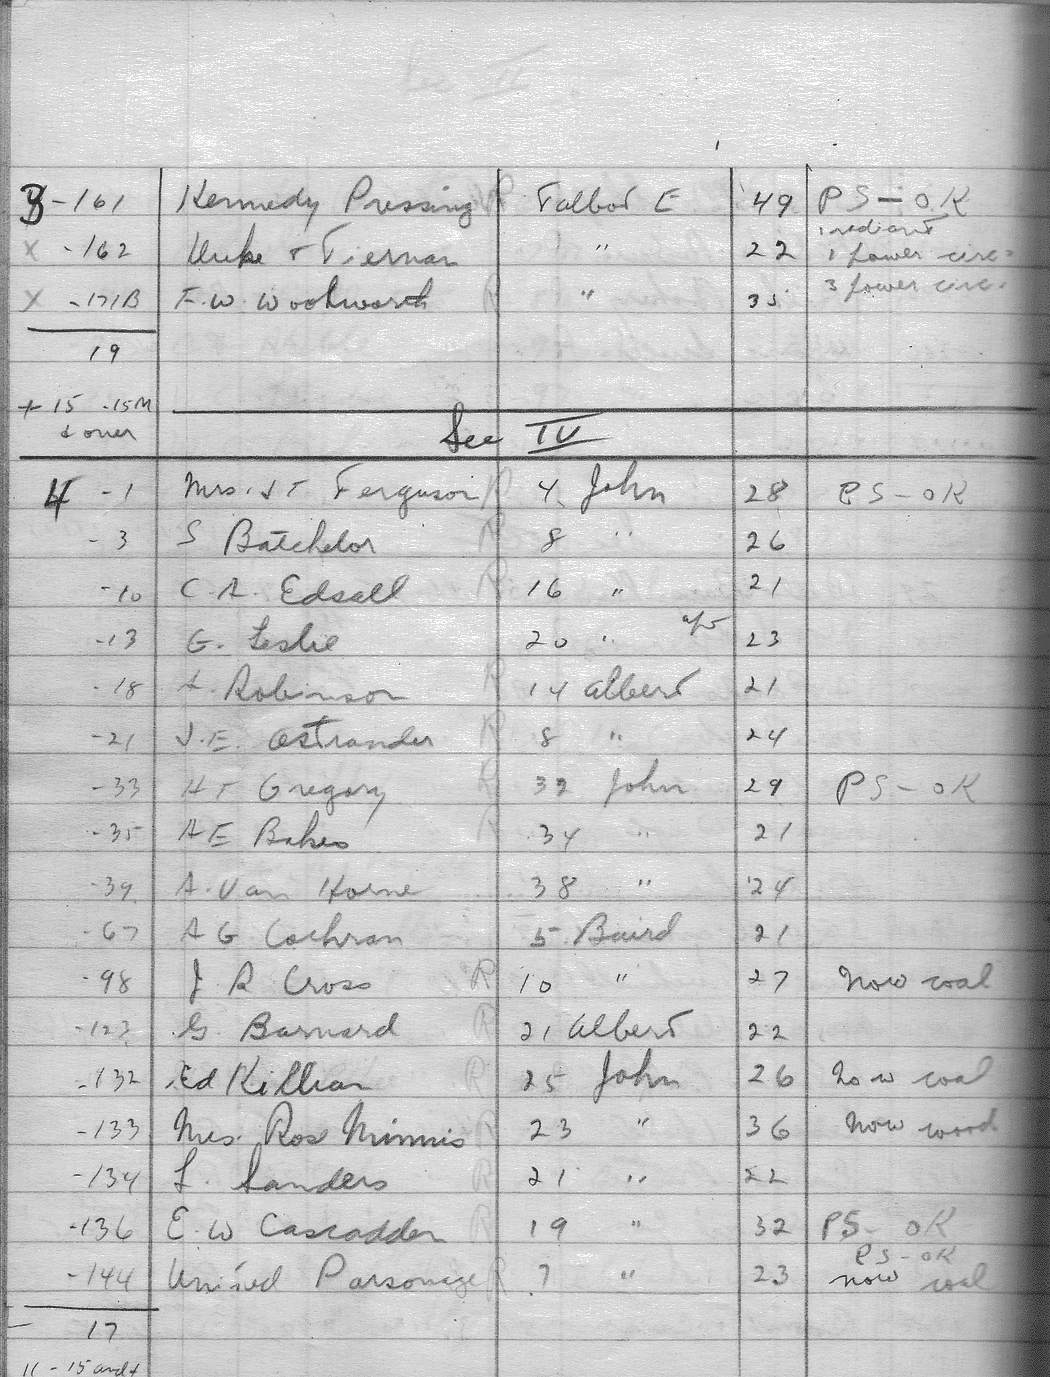 3 -161 Kennedy Pressing R Talbot E 49 PS-OK
1 radiant
X -162 Duke + Tiernan " 22 1 power circ.
X -171B F.W. Woolworth R " 35 3 power circ.
19
+ 15 -15M
+ over
See IV
4 -1 Mrs. J T Ferguson R 4 John 28 PS-OK
-3 S Batchelor R 8 " 26
-10 C. A. Edsall R 16 " 21
-13 G. Leslie 20 " 23
-18 Robinson R 14 Albert 21
-21 J.E. Ostrander R 8 " 24
-33 H T Gregory R 32 John 29 PS-OK
-35 A E Bakes R 34 " 21
-39 A. Van Horne 38 " 24
-67 A G Cochran 5 Baird 21
-98 J R Cross R 10 " 27 now coal
-123 G Barnard R 21 Albert 22
-132 Ed Killian R 25 John 26 now coal
-133 Mrs. Rose Minnis R 23 " 36 now wood
-134 L. Sanders R 21 " 22
-136 E. W Cascadden R 19 " 32 PS-OK
PS-OK
-144 United Parsonage R 7 " 23 now coal
17
11 - 15 and +